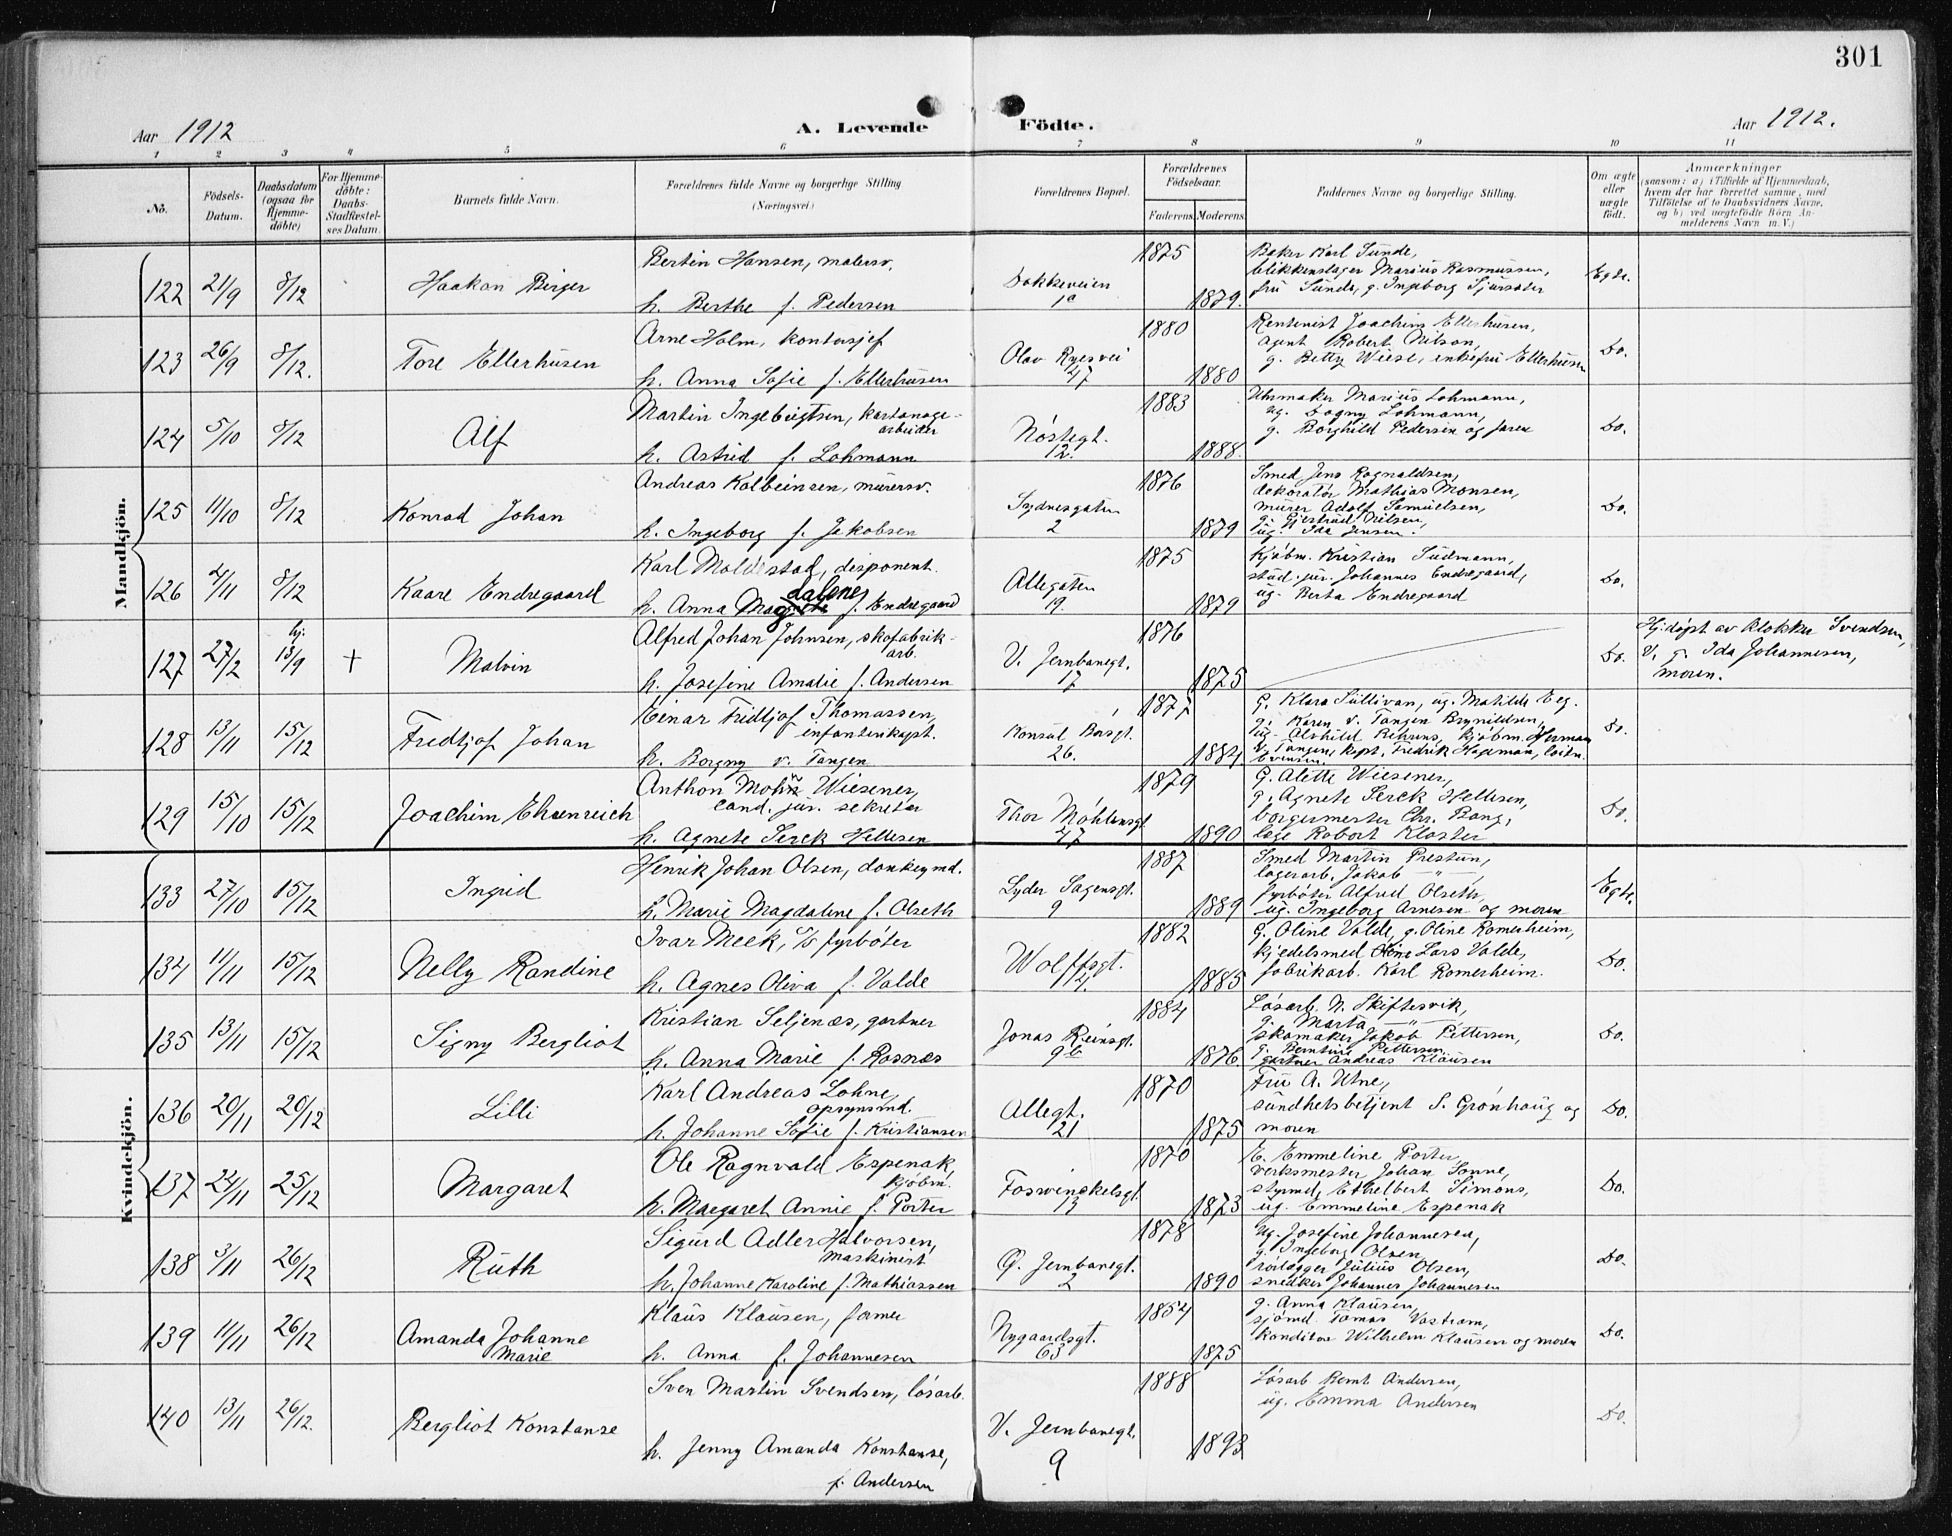 301
Aar 1912
A. Levende Födte.
Aar 1912.
1 2 3 4 5 6 7 8 9 10 11
No.
Födsels-Datum.
Daabsdatum (ogsaa for Hjemme-döbte)
For Hjemme-döbte: Daabs-Stadfæstel-ses Datum.
Barnets fulde Navn.
Forældrenes fulde Navne og borgerlige Stilling
(Næringsvei.)
Forældrenes Bopæl.
Forældrenes Födselsaar.
Faderens. Moderens.
Faddernes Navne og borgerlige Stilling.
Om ægte eller uægte födt.
Anmærkninger
(saasom: a) i Tilfælde af Hjemmedaab,
hvem der har forrettet samme, med
Tilföielse af to Daabsvidners Navne,
og b) ved uægtefödte Börn An-
melderens Navn m. V.)
Mandkjön.
122 21/9 8/12 Haakon Birger
Bertin Hansen, malersv.
h. Berthe f. Pedersen
Dokkeveien
1a
1875
1879.
Baker Karl Sunde,
blikkenslager Marius Rasmussen,
fru Sunde, g. Ingeborg Tjursæter
Egte.
123 26/9 8/12. Tore Ellerhusen
Arne Holm, kontorsjef
h. Anna Sofie f. Ellerhusen
Olav Ryesvei
47
1880
1880
Rentenist Joachim Ellerhusen,
agent Robert Nilson,
g. Betty Wiese, enkefru Ellerhusen
Do.
124 5/10 8/12 Alf
Martin Ingebrigtsen, kartonage-
arbeider
h. Astrid f. Lohmann
Nöstegt.
12.
1883
1888.
Uhrmaker Marius Lohmann,
ug. Dagny Lohmann,
g. Borghild Pedersen og faren
Do.
125 11/10 8/12 Konrad Johan
Andreas Kolbeinsen, murersv.
h. Ingeborg f. Jakobsen
Sydnesgaten
2
1876
1879
Smed Jens Ragnaldsen,
dekoratör Mathias Monsen,
murer Adolf Samuelsen,
g. Gjertrud Nilsen,
ug. Ida Jensen.
Do.
126 2/11 8/12 Kaare Endregaard
Karl Moldestad, disponent
dalene
h. Anna Magrete f. Endregaard
Allegaten
19.
1875
1879
Kjöbm. Kristian Sudmann,
stud. jur. Johannes Endregaard,
ug. Berta Endregaard
Do.
127 27/2 hj. 13/9 + Malvin
Alfred Johan Johnsen, skofabrik-
arb.
h. Josefine Amalie f. Andersen
V. Jernbanegt.
17
1876
1875
Do.
Hj.döpt av klokker Svendsen,
V. g. Ida Johannesen,
moren.
128 13/11 15/12 Fredtjof Johan
Einar Fridtjof Thomassen,
infanterikapt.
h. Borgny v. Tangen
Konsul Börsgt.
26.
1877
1884
G. Klara Sullivan, ug. Matilde Eeg.
g. Karen v. Tangen Brynildsen,
ug. Alvhild Behrens, kjöbm. Herman
v. Tangen, kapt. Fredrik Hageman, löitn.
Evensen.
Do.
129 15/10 15/12 Joachim Ehrenreich
Anthon Mohr Wiesener,
cand. jur. sekretær
h. Agnete Serck Hellesen
Thor Möhlensgt.
47
1879
1890
G. Alette Wiesener,
g. Agnete Serck Hellesen,
borgermester Chr. Bang,
læge Robert Kloster
Do.
Kvindekjön.
133 27/10 15/12 Ingrid
Henrik Johan Olsen, donkeymd.
h. Marie Magdalene f. Olseth
Lyder Sagensgt.
9
1887
1889
Smed Martin Prestun,
lagerarb. Jakob —"—,
fyrböter Alfred Olseth,
ug. Ingeborg Arnesen og moren
Egte.
134 11/11 15/12 Nelly Randine
Ivar Meek, s/s fyrböter
h. Agnes Oliva f. Valde
Wolffsgt.
14.
1882
1885
G. Oline Valde, g. Oline Romerheim,
kjedelsmed Lars Valde,
fabrikarb. Karl Romerheim.
Do.
135 13/11 15/12 Signy Bergliot
Kristian Seljenæs, gartner
h. Anna Marie f. Rosnæs
Jonas Reinsgt.
9b
1884
1876.
Lösarb. N. Skiftesvik,
g. Marta —"—,
skomaker Jakob Pettersen,
g. Berntine Pettersen
gartner Andreas Klausen
Do.
136 20/11 20/12 Lilli
Karl Andreas Lohne,
opsynsmd.
h. Johanne Sofie f. Kristiansen
Allegt.
21
1870
1875
Fru A. Utne,
sundhetsbetjent S. Grönhaug og
moren
Do.
137 24/11 25/12 Margaret
Ole Ragnvald Espenak,
kjöbm.
h. Margaret Annie f. Porter
Fosvinckelsgt.
13
1870
1873
E. Emmeline Porter,
verksmester Johan Sonne,
styrmd. Ethelbert Simons,
ug. Emmeline Espenak
Do.
138 3/11 26/12 Ruth
Sigurd Adler Halvorsen,
maskinist
h. Johanne Karoline f. Mathiassen
Ø. Jernbanegt.
2
1878
1890
Ug. Josefine Johannesen,
g. Ingeborg Olsen,
rörlægger Julius Olsen,
snedker Johannes Johannesen
Do.
139 11/11 26/12 Amanda Johanne
Marie
Klaus Klausen, former
h. Anna f. Johannesen
Nygaardsgt.
63
1854
1875
g. Anna Klausen,
sjömd. Tomas Vastram,
konditor Wilhelm Klausen og moren
Do.
140 13/11 26/12. Bergliot Konstanse
Sven Martin Svendsen, lösarb.
h. Jenny Amanda Konstanse,
f. Andersen
V. Jernbanegt.
9
1888
1893
Lösarb Bernt Andersen,
ug. Emma Andersen
Do.